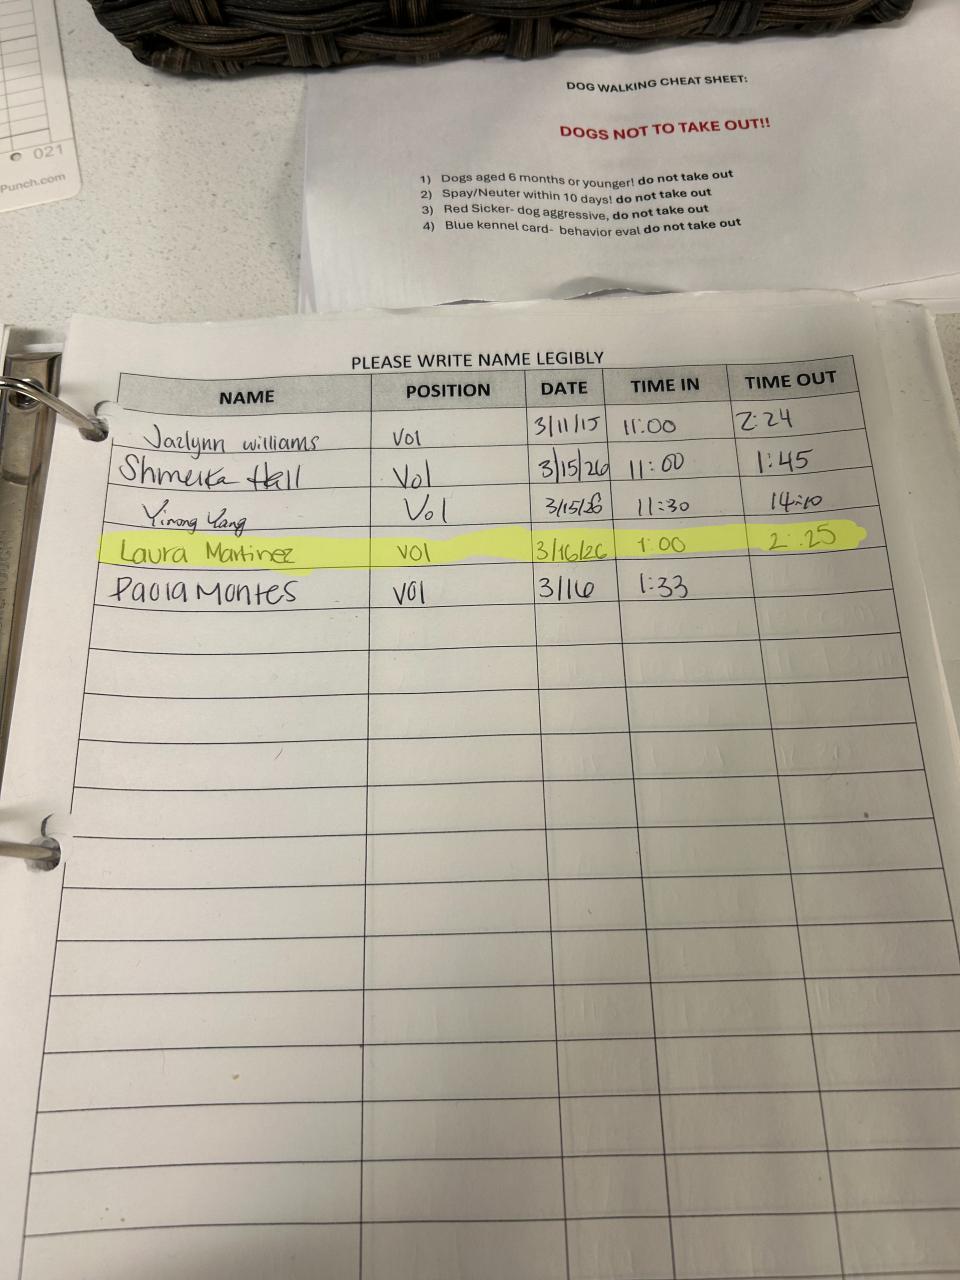 021
Punch.com
DOG WALKING CHEAT SHEET:
DOGS NOT TO TAKE OUT!!
1) Dogs aged 6 months or younger! do not take out
2) Spay/Neuter within 10 days! do not take out
3) Red Sicker- dog aggressive, do not take out
4) Blue kennel card- behavior eval do not take out
PLEASE WRITE NAME LEGIBLY
NAME POSITION DATE TIME IN TIME OUT
Jazlynn williams Vol 3/11/15 11:00 2:24
Shmeika Hall Vol 3/15/26 11:00 1:45
Yirong Yang Vol 3/15/26 11:30 14:10
Laura Martinez VOl 3/16/26 1:00 2:25
Paola Montes VOl 3/16 1:33